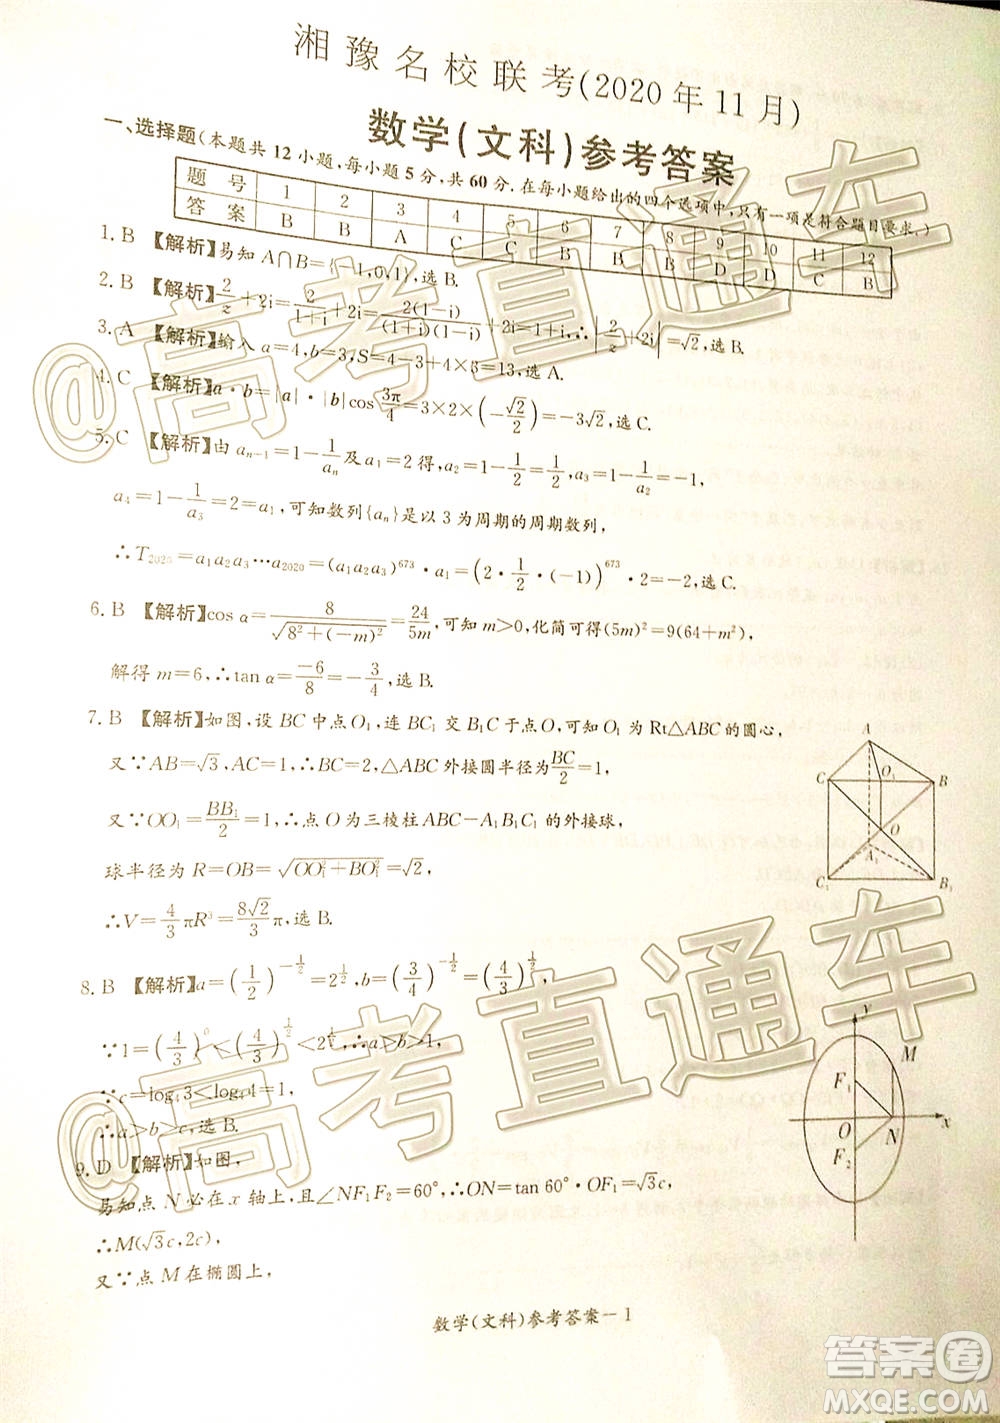 湘豫名校联考(2020年11月)
数学(文科)参考答案
一、选择题(本题共12小题,每小题5分,共60分.在每小题给出的四个选项中,只有一项是符合题目要求.)
题号 1 2 3 4 5 6 7 8 9 10 11 12
答案 B B A C C B B B D D C B
1. B 【解析】易知A∩B={-1,0,1},选B.
2. B 【解析】2/z+2i=2/(1+i)+2i=2(1-i)/((1+i)(1-i))+2i=1+i,∴|2/z+2i|=√2,选B.
3. A 【解析】输入a=4,b=3,S=4-3+4×3=13,选A.
4. C 【解析】a·b=|a|·|b|cos 3π/4=3×2×(-√2/2)=-3√2,选C.
5. C 【解析】由a_{n-1}=1-1/a_n及a₁=2得,a₂=1-1/2=1/2,a₃=1-1/a₂=-1,
a₄=1-1/a₃=2=a₁,可知数列{a_n}是以3为周期的周期数列,
∴T₂₀₂₀=a₁a₂a₃…a₂₀₂₀=(a₁a₂a₃)^673·a₁=(2·1/2·(-1))^673·2=-2,选C.
6. B 【解析】cos α=8/√(8²+(-m)²)=24/5m,可知m>0,化简可得(5m)²=9(64+m²),
解得m=6,∴tan α=-6/8=-3/4,选B.
7. B 【解析】如图,设BC中点O₁,连BC₁交B₁C于点O,可知O₁为Rt△ABC的圆心,
又∵AB=√3,AC=1,∴BC=2,△ABC外接圆半径为BC/2=1,
又∵OO₁=BB₁/2=1,∴点O为三棱柱ABC-A₁B₁C₁的外接球,
球半径为R=OB=√(OO₁²+BO₁²)=√2,
∴V=4/3πR³=8√2/3π,选B.
A
C O₁ B
O
A₁
C₁ B₁
8. B 【解析】a=(1/2)^{-1/2}=2^{1/2},b=(3/4)^{-1/2}=(4/3)^{1/2},
∵1=(4/3)^0<(4/3)^{1/2}<2^{1/2},∴a>b>1,
∵c=log₄3<log₄4=1,
∴a>b>c,选B.
9. D 【解析】如图,
易知点N必在x轴上,且∠NF₁F₂=60°,∴ON=tan 60°·OF₁=√3c,
∴M(√3c,2c),
又∵点M在椭圆上,
y
M
F₁
O N x
F₂
数学(文科)参考答案-1
@高考直通车
@高考直通车
答案圈
MXQE.COM